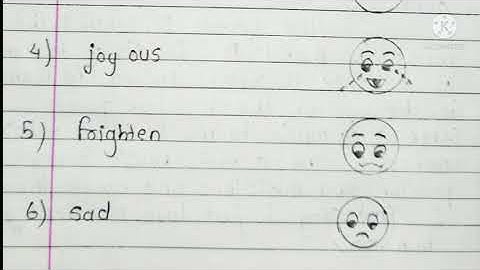 4) joy ous
5) frighten
6) sad